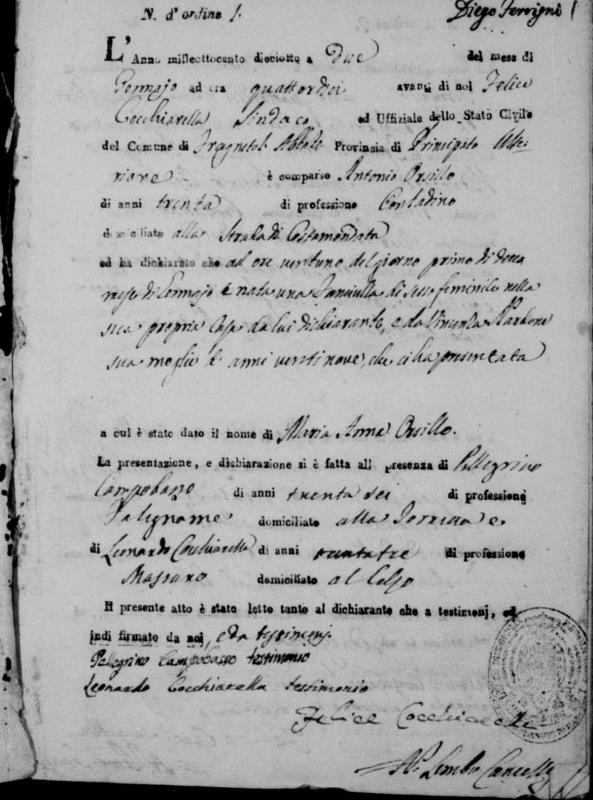 N. d'ordine 1.
Diego Ferrigni
L'Anno milleottocento dieciotto a due del mese di
Gennajo ad ora quattordici avanti di noi Felice
Cocchiarella Sindaco ed Uffiziale dello Stato Civile
del Comune di Fragnetol Abbate Provincia di Principato Ulte=
riore è comparso Antonio Orsillo
di anni trenta di professione Contadino
domiciliato alla Strada di Costamondata
ed ha dichiarato che ad ore ventuno del giorno primo di detto
mese di Gennajo è nata una Fanciulla di sesso feminile nella
sua propria Casa da lui dichiarante, e da Vincenza Narbone
sua moglie di anni ventinove, che ci ha presentata
a cui è stato dato il nome di Maria Anna Orsillo.
La presentazione, e dichiarazione si è fatta all presenza di Pellegrino
Campobasso di anni trenta sei di professione
Falegname domiciliato alla
di Leonardo Cocchiarella di anni trentatre di professione
Massaro domiciliato al Celso
Il presente atto è stato letto tanto al dichiarante che a testimonj, ed
indi firmato da noi, e da testimonj.
Pellegrino Campobasso testimonio
Leonardo Cocchiarella testimonio
Felice Cocchiarella
Lembo Cancelle